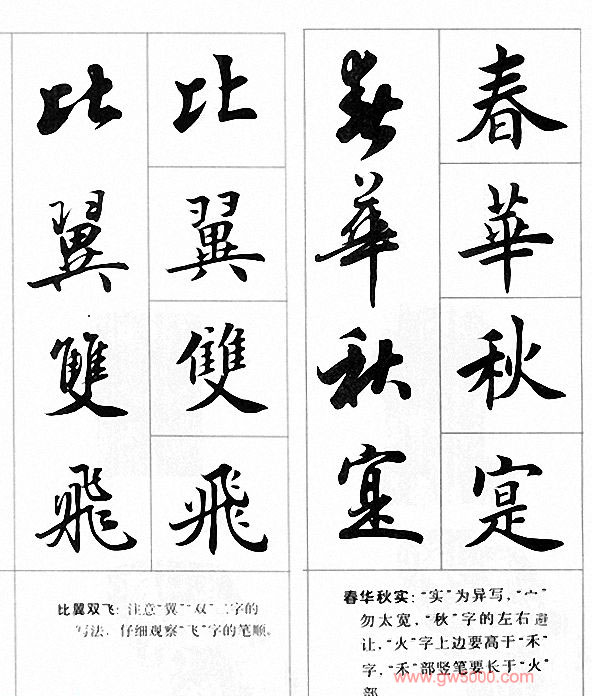 春華秋寔
春華秋寔
比翼雙飛
比翼雙飛
春华秋实:“实”为异写,“宀”
勿太宽,“秋”字的左右避
让,“火”字上边要高于“禾”
字,“禾”部竖笔要长于“火”
部
比翼双飞:注意“翼”“双”二字的
写法,仔细观察“飞”字的笔顺。
www.gw5000.com